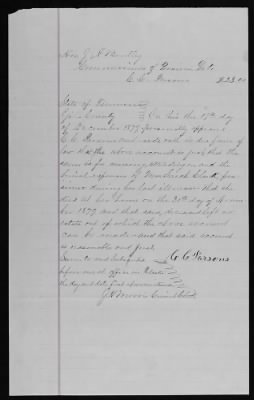 Hon J A Bentley
Commissioner of Pensions
C. C. Parsons $23.00
State of
County On this the 17th day
of December 1879 personally appeared
C. C. Parsons and made oath in due form of
law that the above account is just that the
same is for nursing, attending on and the
burial expenses of Clark,
during her last illness that she
died at her home on the 30th day of
1879 and that said deceased left no
estate out of which the above account
can be made and that said account
is reasonable and just
Sworn to and Subscribed C C Parsons
before me at office in
the day and date first above written